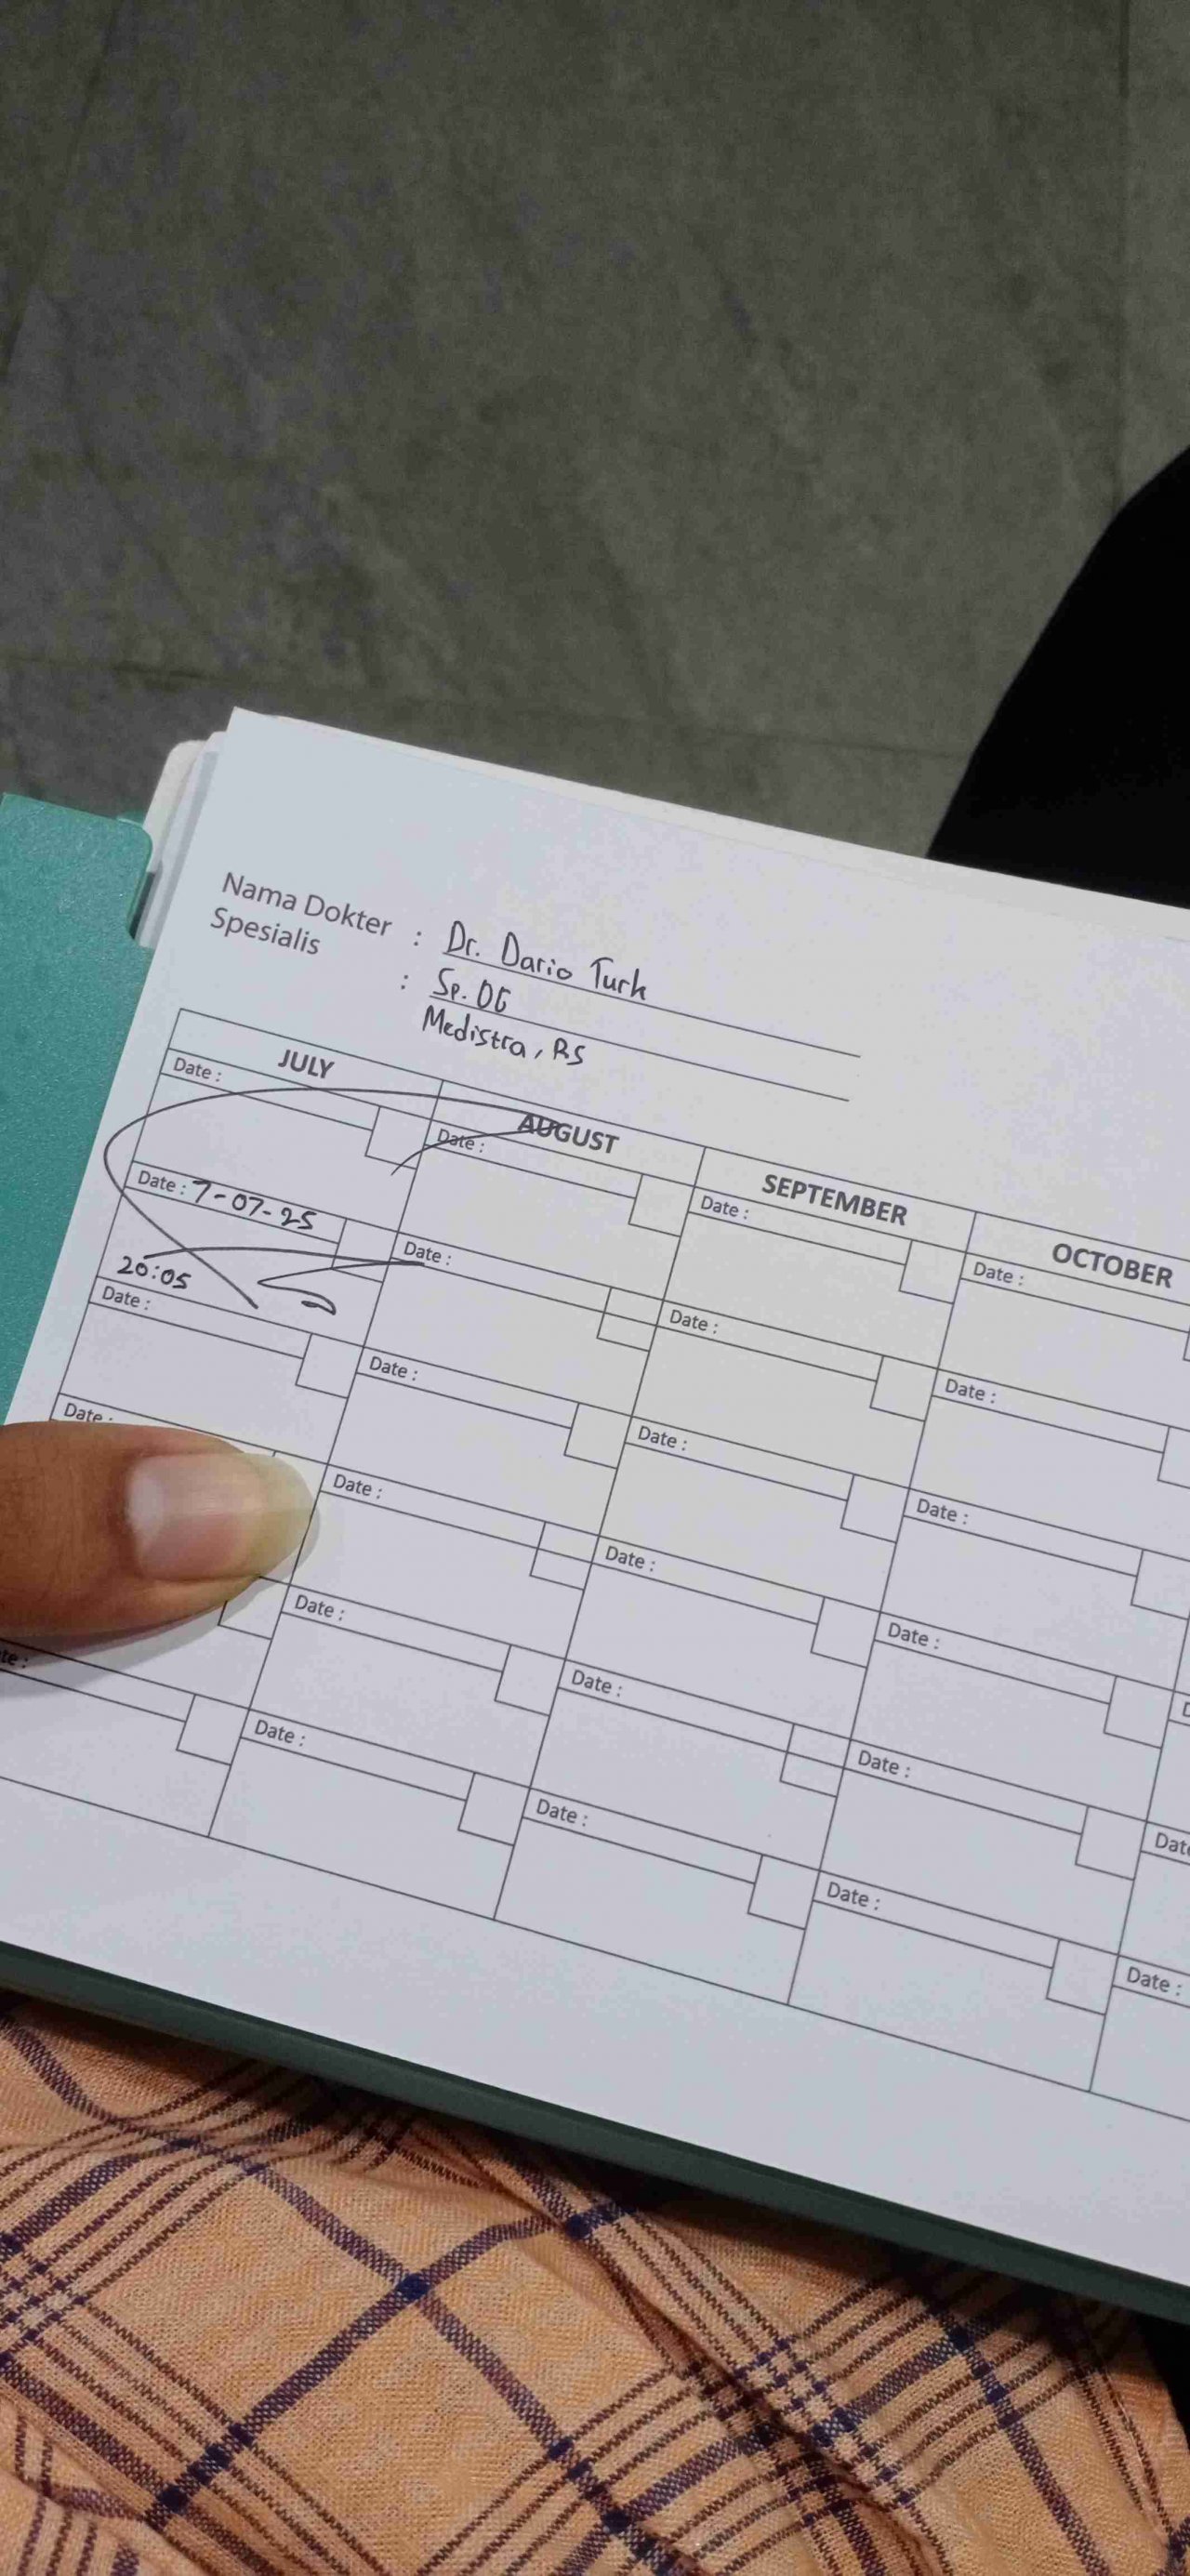 Nama Dokter : Dr. Dario Turk
Spesialis : Sp. OG
Medistra, RS
JULY AUGUST SEPTEMBER OCTOBER
Date : Date : Date : Date :
Date : 7-07-25 Date : Date : Date :
20:05
Date : Date : Date : Date :
Date : Date : Date : Date :
Date : Date : Date :
Date : Date : Date : Date :